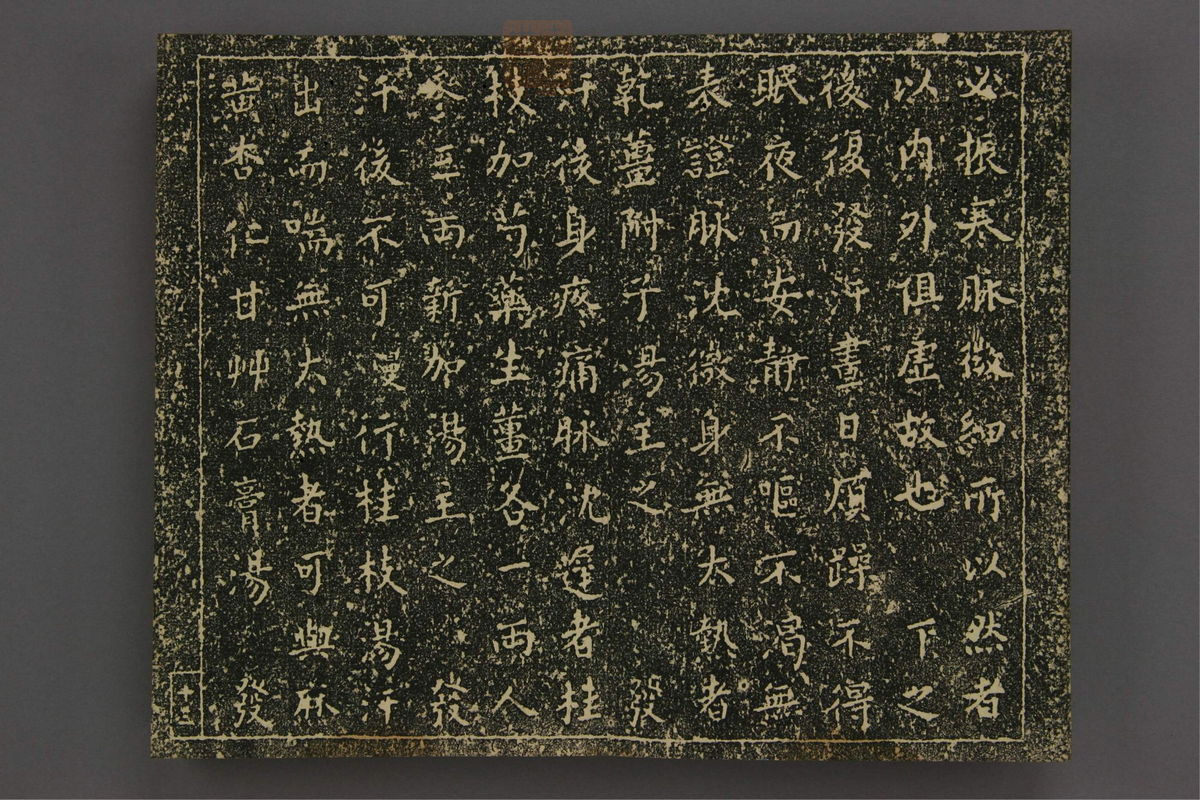 必振寒脉微細所以然者
以内外俱虚故也　下之
後復發汗晝日煩躁不得
眠夜而安静不嘔不渴無
表證脉沈微身無大熱者
乾薑附子湯主之　發
汗後身疼痛脉沈遲者桂
枝加芍藥生薑各一兩人
參三兩新加湯主之　發
汗後不可更行桂枝湯汗
出而喘無大熱者可與麻
黄杏仁甘艸石膏湯　發
十三